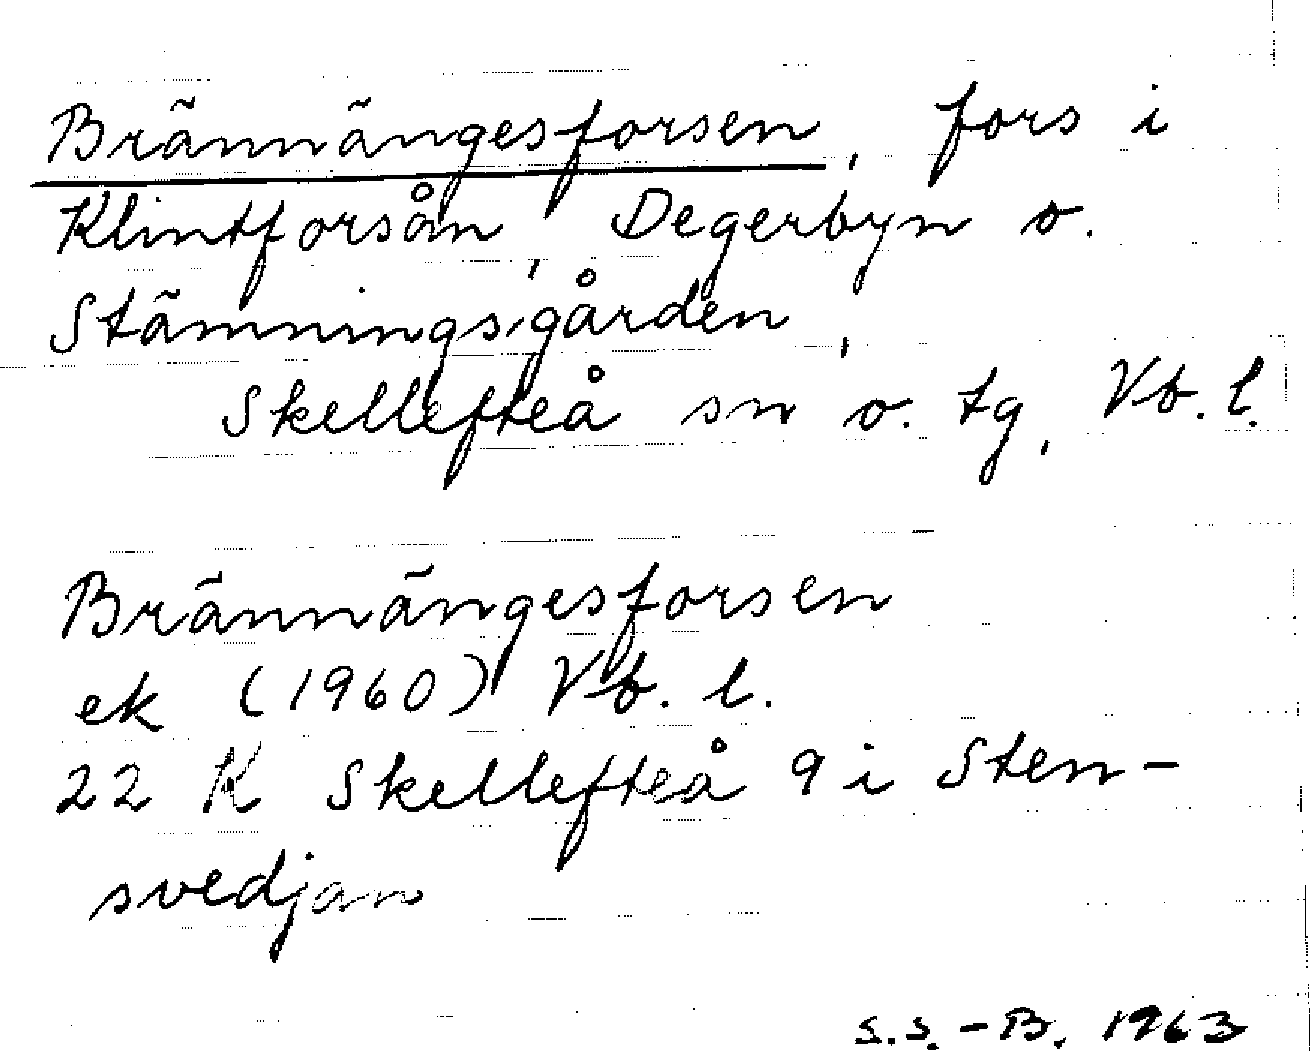 Brännängesforsen, fors i
Klintforsån, Degerbyn o.
Stämningsgården,
Skellefteå sn o. tg, Vb. l.
Brännängesforsen
ek (1960) Vb. l.
22 K Skellefteå 9 i Sten-
svedjan
S.S.-B. 1963